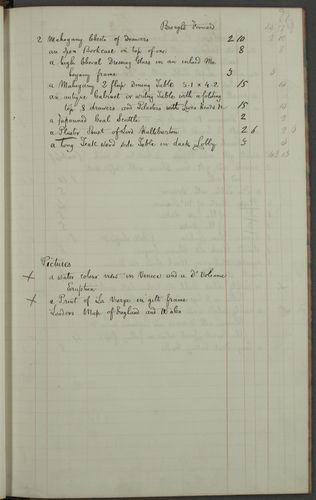 Brought Forward
2 Mahogany Chests of Drawers 2 10
an Iron Bookcase on top of one 8
a high Cheval Dressing Glass in an inlaid Ma
hogany frame 3
a Mahogany 2 flap Dining Table 5.1 x 4.2 15
an antique Cabinet or writing Table with a folding
top 8 drawers and Pilasters with Lions heads 15
a Japanned Coal Scuttle 2
a Plaster Bust of Lord Haliburton 2 6
a long Teak wood side Table in dark Lobby 5
Pictures
+ a water color view in Venice and a Do Volcanic
Eruption
+ a Print of La Vierge in gilt frame
Laidors Map of England and Wales